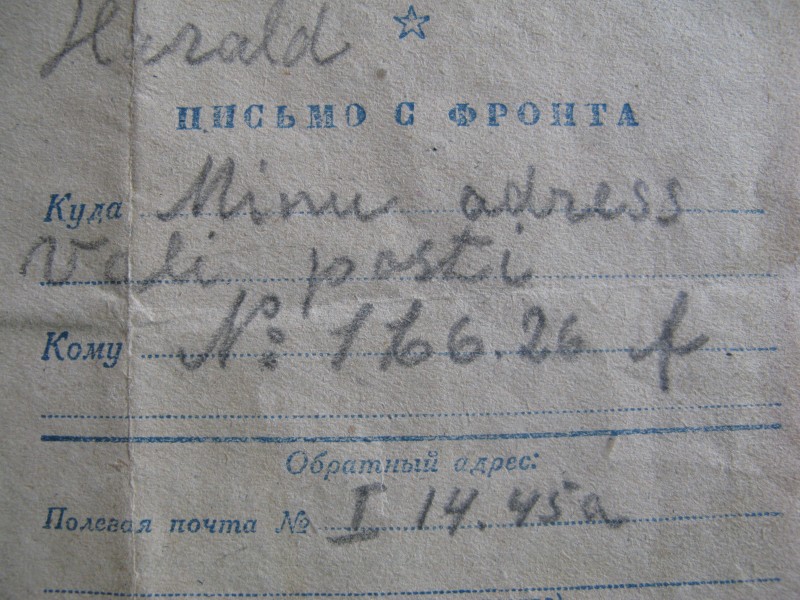 Harald
ПИСЬМО С ФРОНТА
Куда Minu adress
Väli posti
Кому №: 166.26 f
Обратный адрес:
Полевая почта № I 14.45a